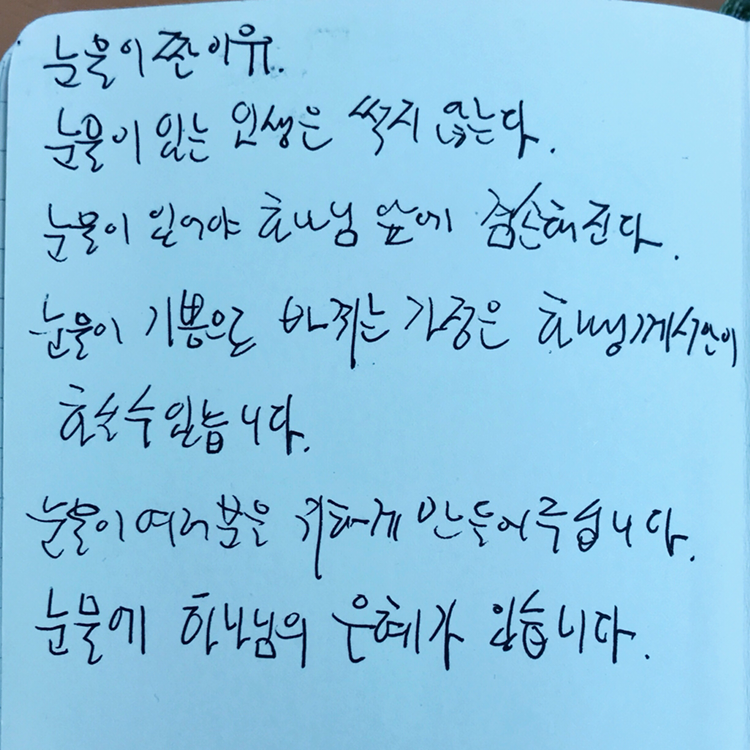 눈물이 짠 이유.
눈물이 있는 인생은 썩지 않는다.
눈물이 있어야 하나님 앞에 겸손해진다.
눈물이 기쁨으로 바뀌는 과정은 하나님께서만이
하실수 있습니다.
눈물이 여러분을 귀하게 만들어 주십니다.
눈물에 하나님의 은혜가 있습니다.